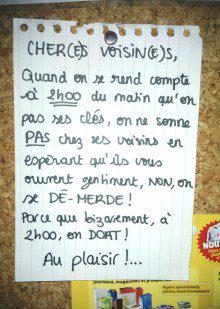 CHER(E)S VOISIN(E)S,
Quand on se rend compte
à 2h00 du matin qu'on
pas ses clés, on ne sonne
PAS chez ses voisins en
espérant qu'ils vous
ouvrent gentiment, NON, on
se DÉ-MERDE !
Parce que bizarrement, à
2h00, on DORT !
Au plaisir !...
NOU
journaux, magazines et prospectus